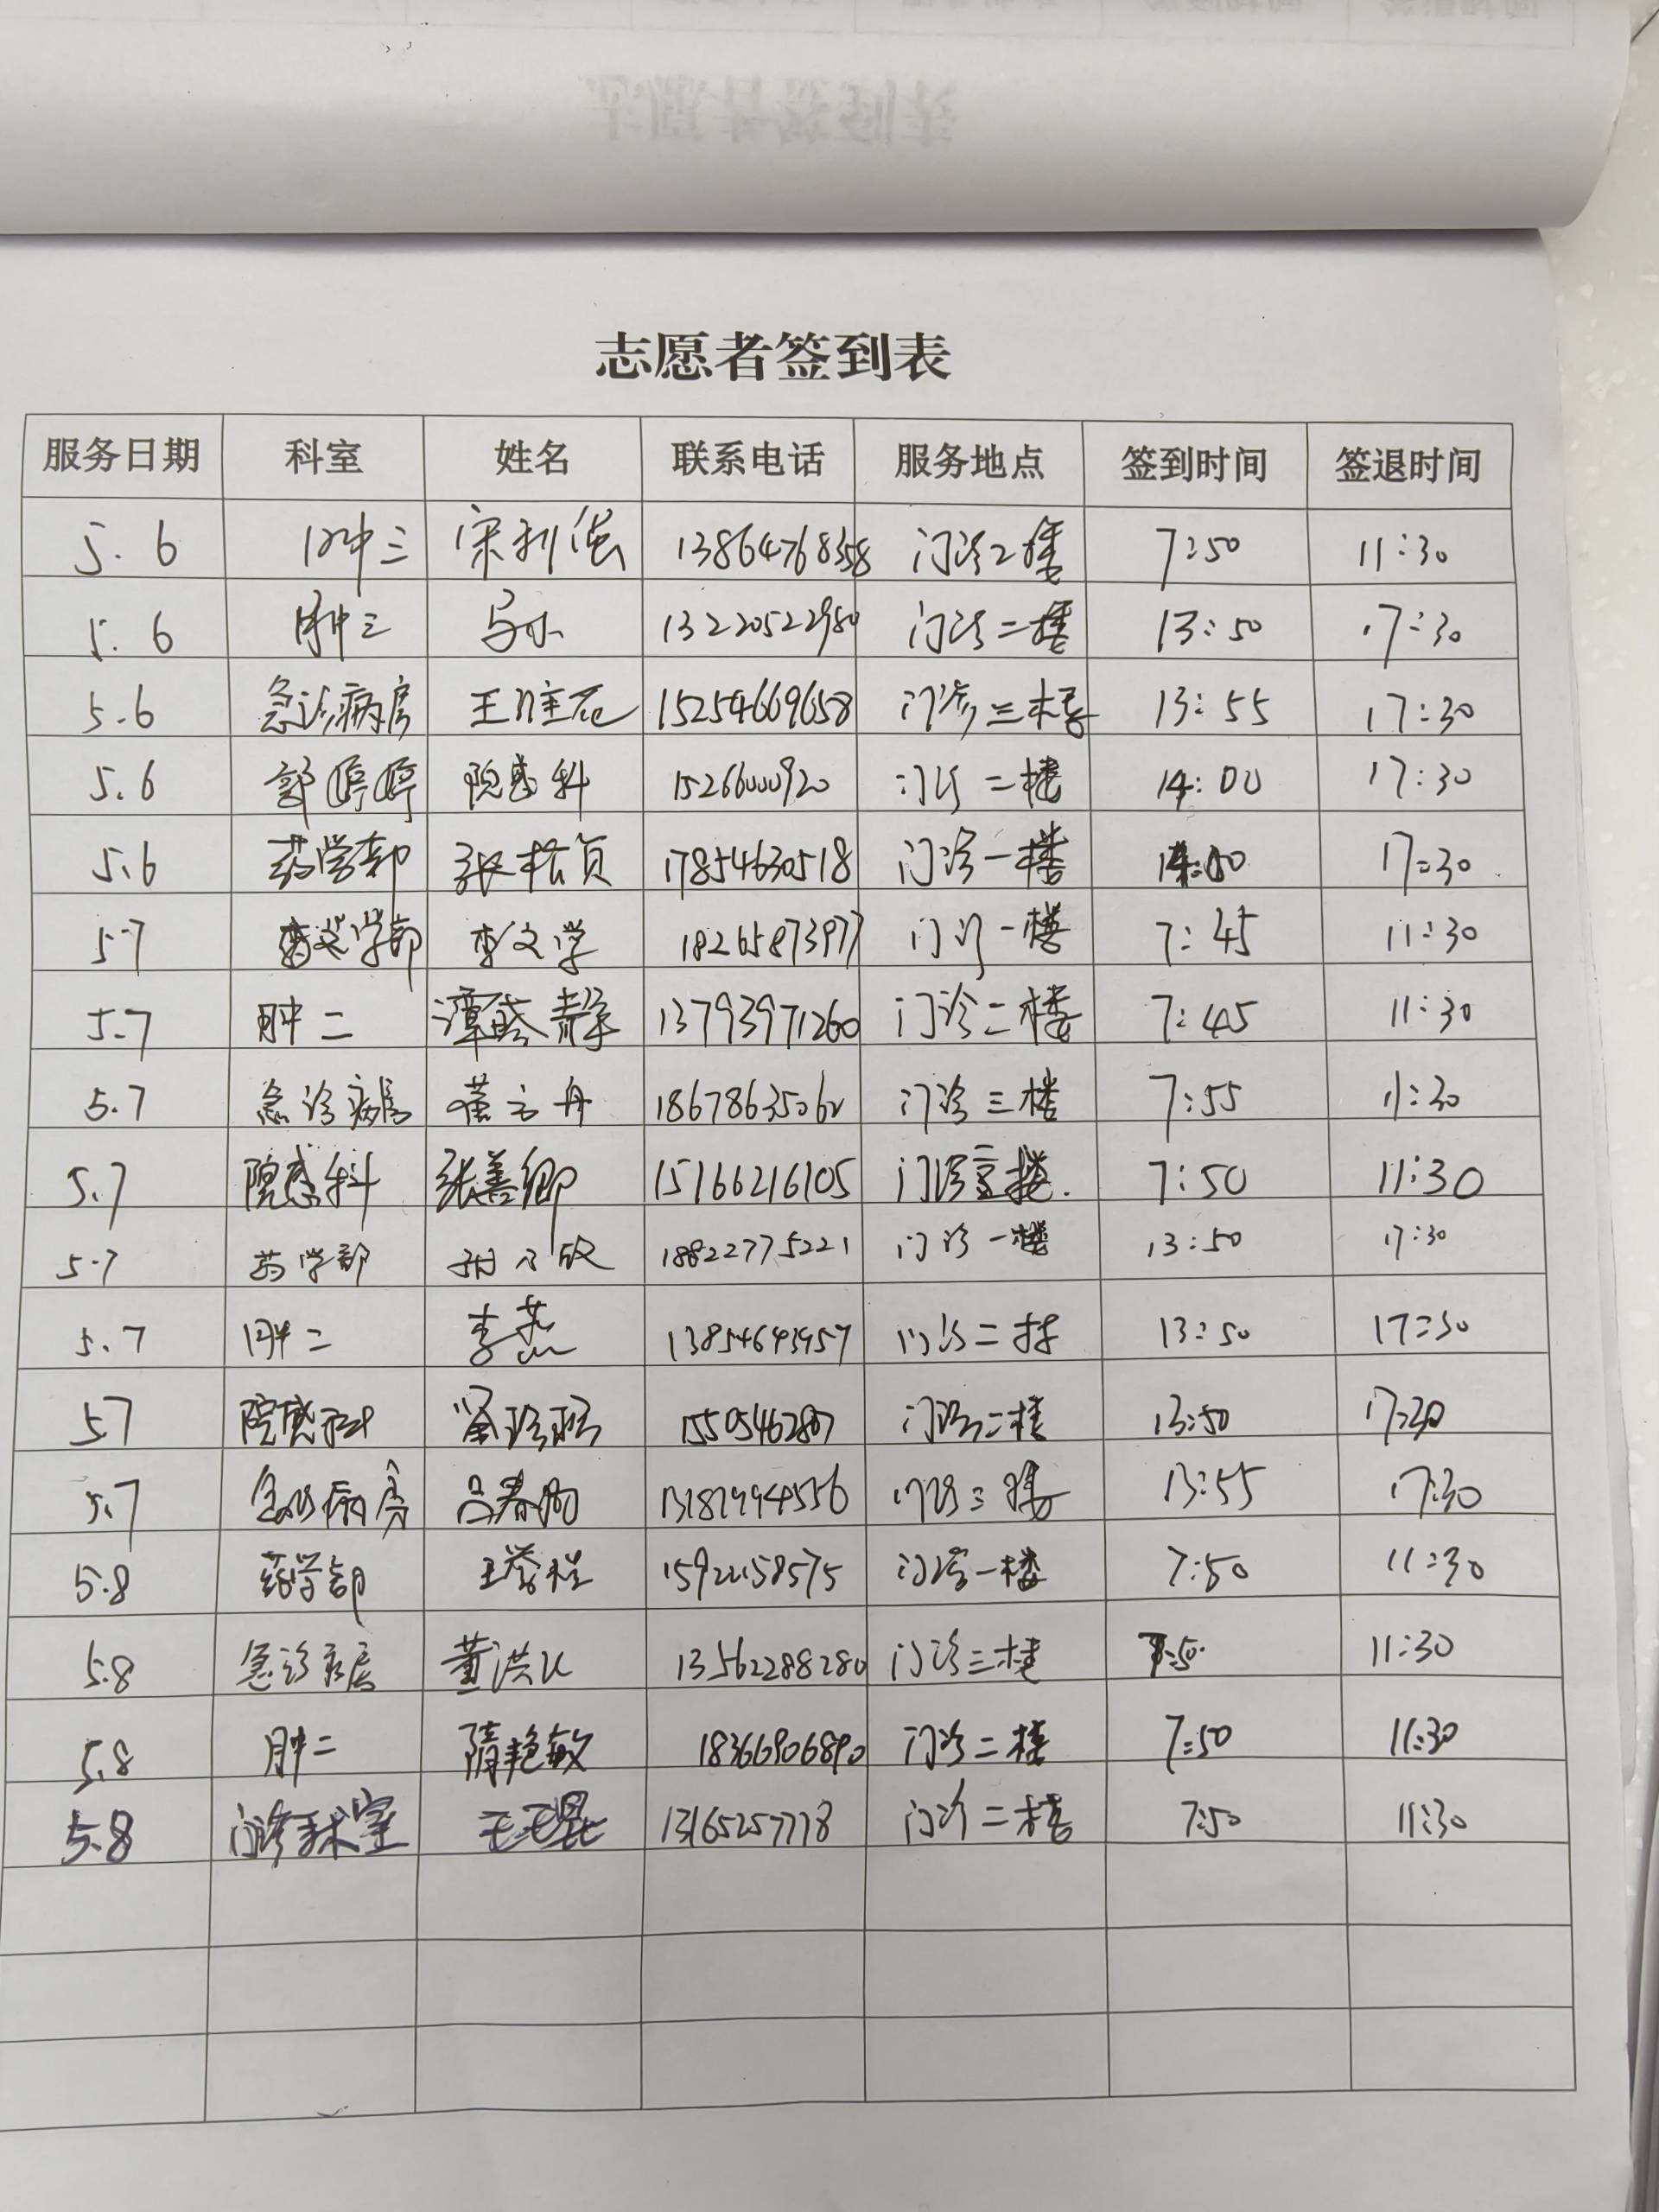 志愿者签到表
服务日期 科室 姓名 联系电话 服务地点 签到时间 签退时间
5.6 肿三 宋利 13864768358 门诊二楼 7:50 11:30
5.6 肿三 13220522980 门诊二楼 13:50 17:30
5.6 急诊病房 王 15254669658 门诊三楼 13:55 17:30
5.6 郭婷婷 院感科 15266000920 门诊二楼 14:00 17:30
5.6 药学部 张 17854630518 门诊一楼 17:30
5.7 药学部 李文学 18265873977 门诊一楼 7:45 11:30
5.7 肿二 谭盛静 13793971260 门诊二楼 7:45 11:30
5.7 急诊病房 董 丹 门诊三楼 7:55 11:30
5.7 院感科 张善卿 15166216105 门诊 楼. 7:50 11:30
5.7 药学部 18822775221 门诊一楼 13:50 17:30
5.7 肿二 李燕 门诊二 13:50 17:30
5.7 院感科 门诊二楼 13:50 17:30
5.7 急诊病房 吕春 门诊三楼 13:55 17:30
5.8 药学部 王 门诊一楼 7:50 11:30
5.8 急诊病房 董洪 13562288280 门诊三楼 7:50 11:30
5.8 肿二 隋艳敏 18366906890 门诊二楼 7:50 11:30
5.8 门诊手术室 13165257778 门诊二楼 7:50 11:30